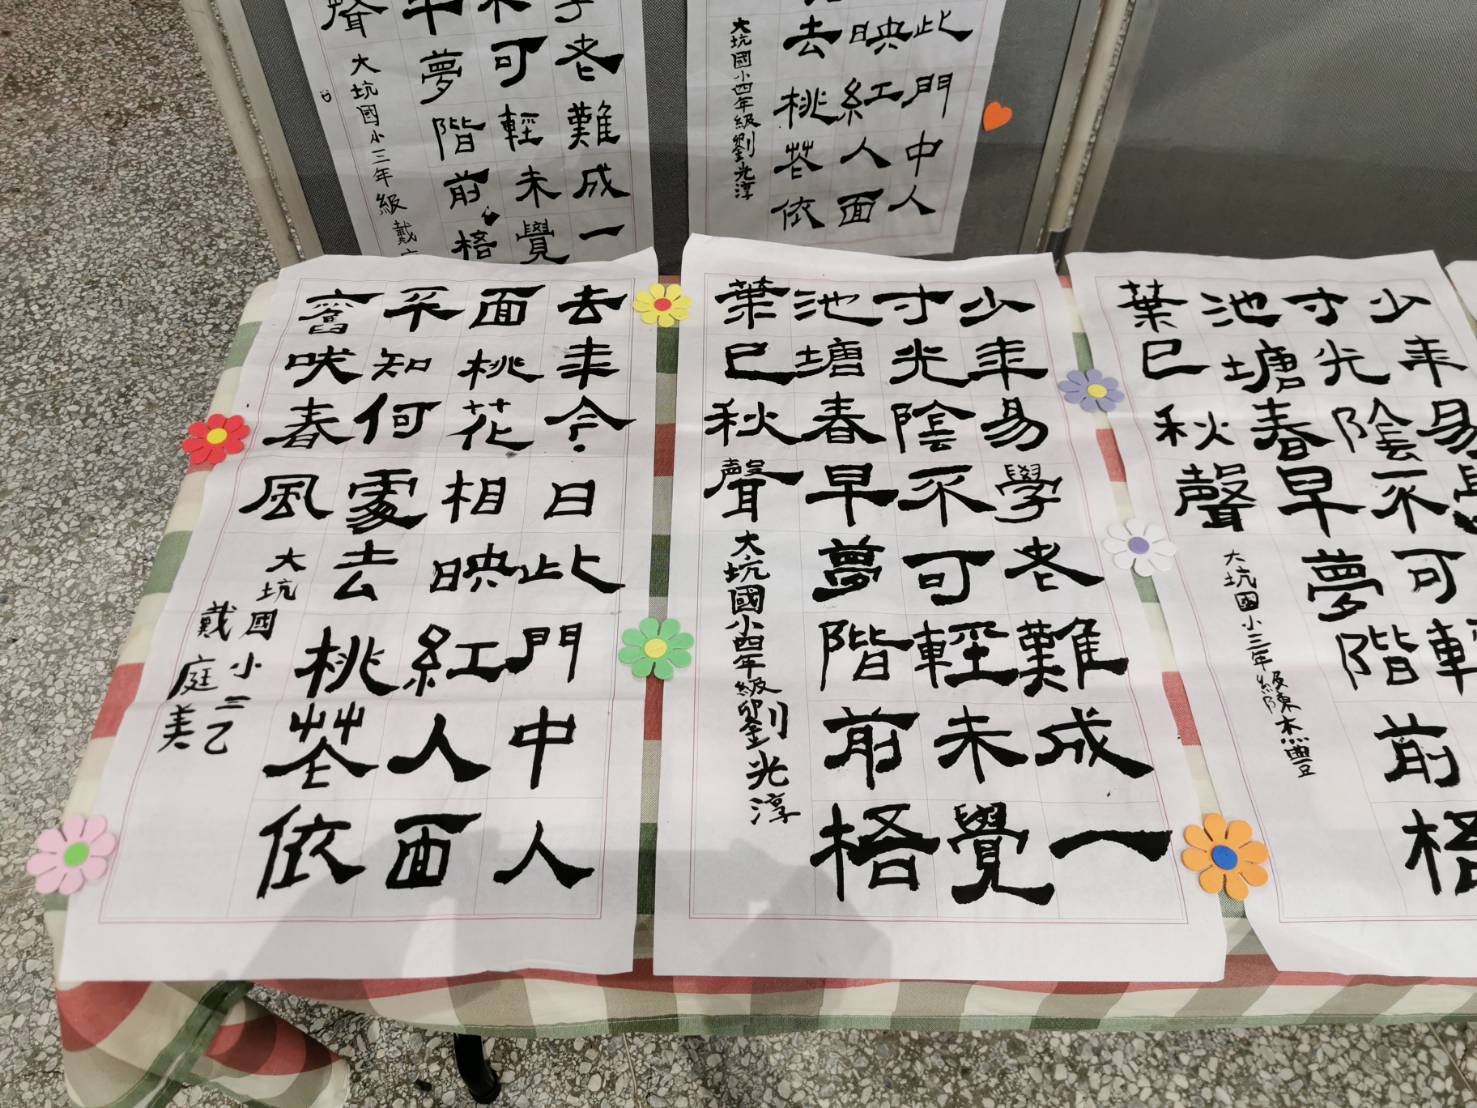 老難成一
不可輕未覺
夢階前梧
聲
大坑國小三年級 戴
此門中人
映紅人面
去桃花依
大坑國小四年級劉光淳
去年今日此門中人
面桃花相映紅人面
不知何處去桃花依
舊咲春風
大坑國小三乙
戴庭美
少年易學老難成一
寸光陰不可輕未覺
池塘春早夢階前梧
葉已秋聲
大坑國小四年級劉光淳
少年易
寸光陰不可輕
池塘春早夢階前梧
葉已秋聲
大坑國小三年級陳杰豐